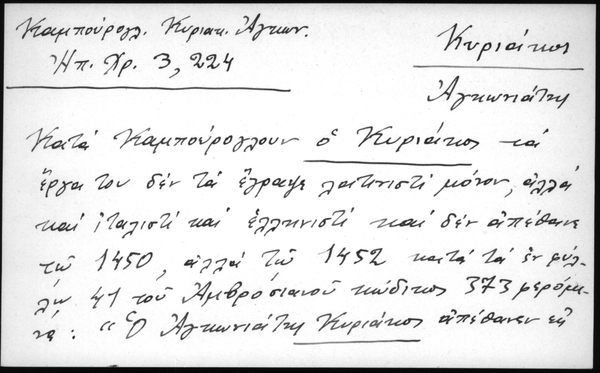 Καμπούρογλ. Κυριακ. Ἀγκων.
Ἠπ. Χρ. 3, 224
Κυριάκος
Ἀγκωνιάτης
Κατά Καμπούρογλουν ὁ Κυριάκος τά
ἔργα του δέν τά ἔγραψε λατινιστί μόνον, ἀλλά
καί ἰταλιστί καί ἑλληνιστί καί δέν ἀπέθανε
τῷ 1450, ἀλλά τῷ 1452 κατά τά ἐν φύλ-
λῳ 41 τοῦ Ἀμβροσιανοῦ κώδικος 373 φερόμε-
να: "Ὁ Ἀγκωνιάτης Κυριάκος ἀπέθανεν εἰς